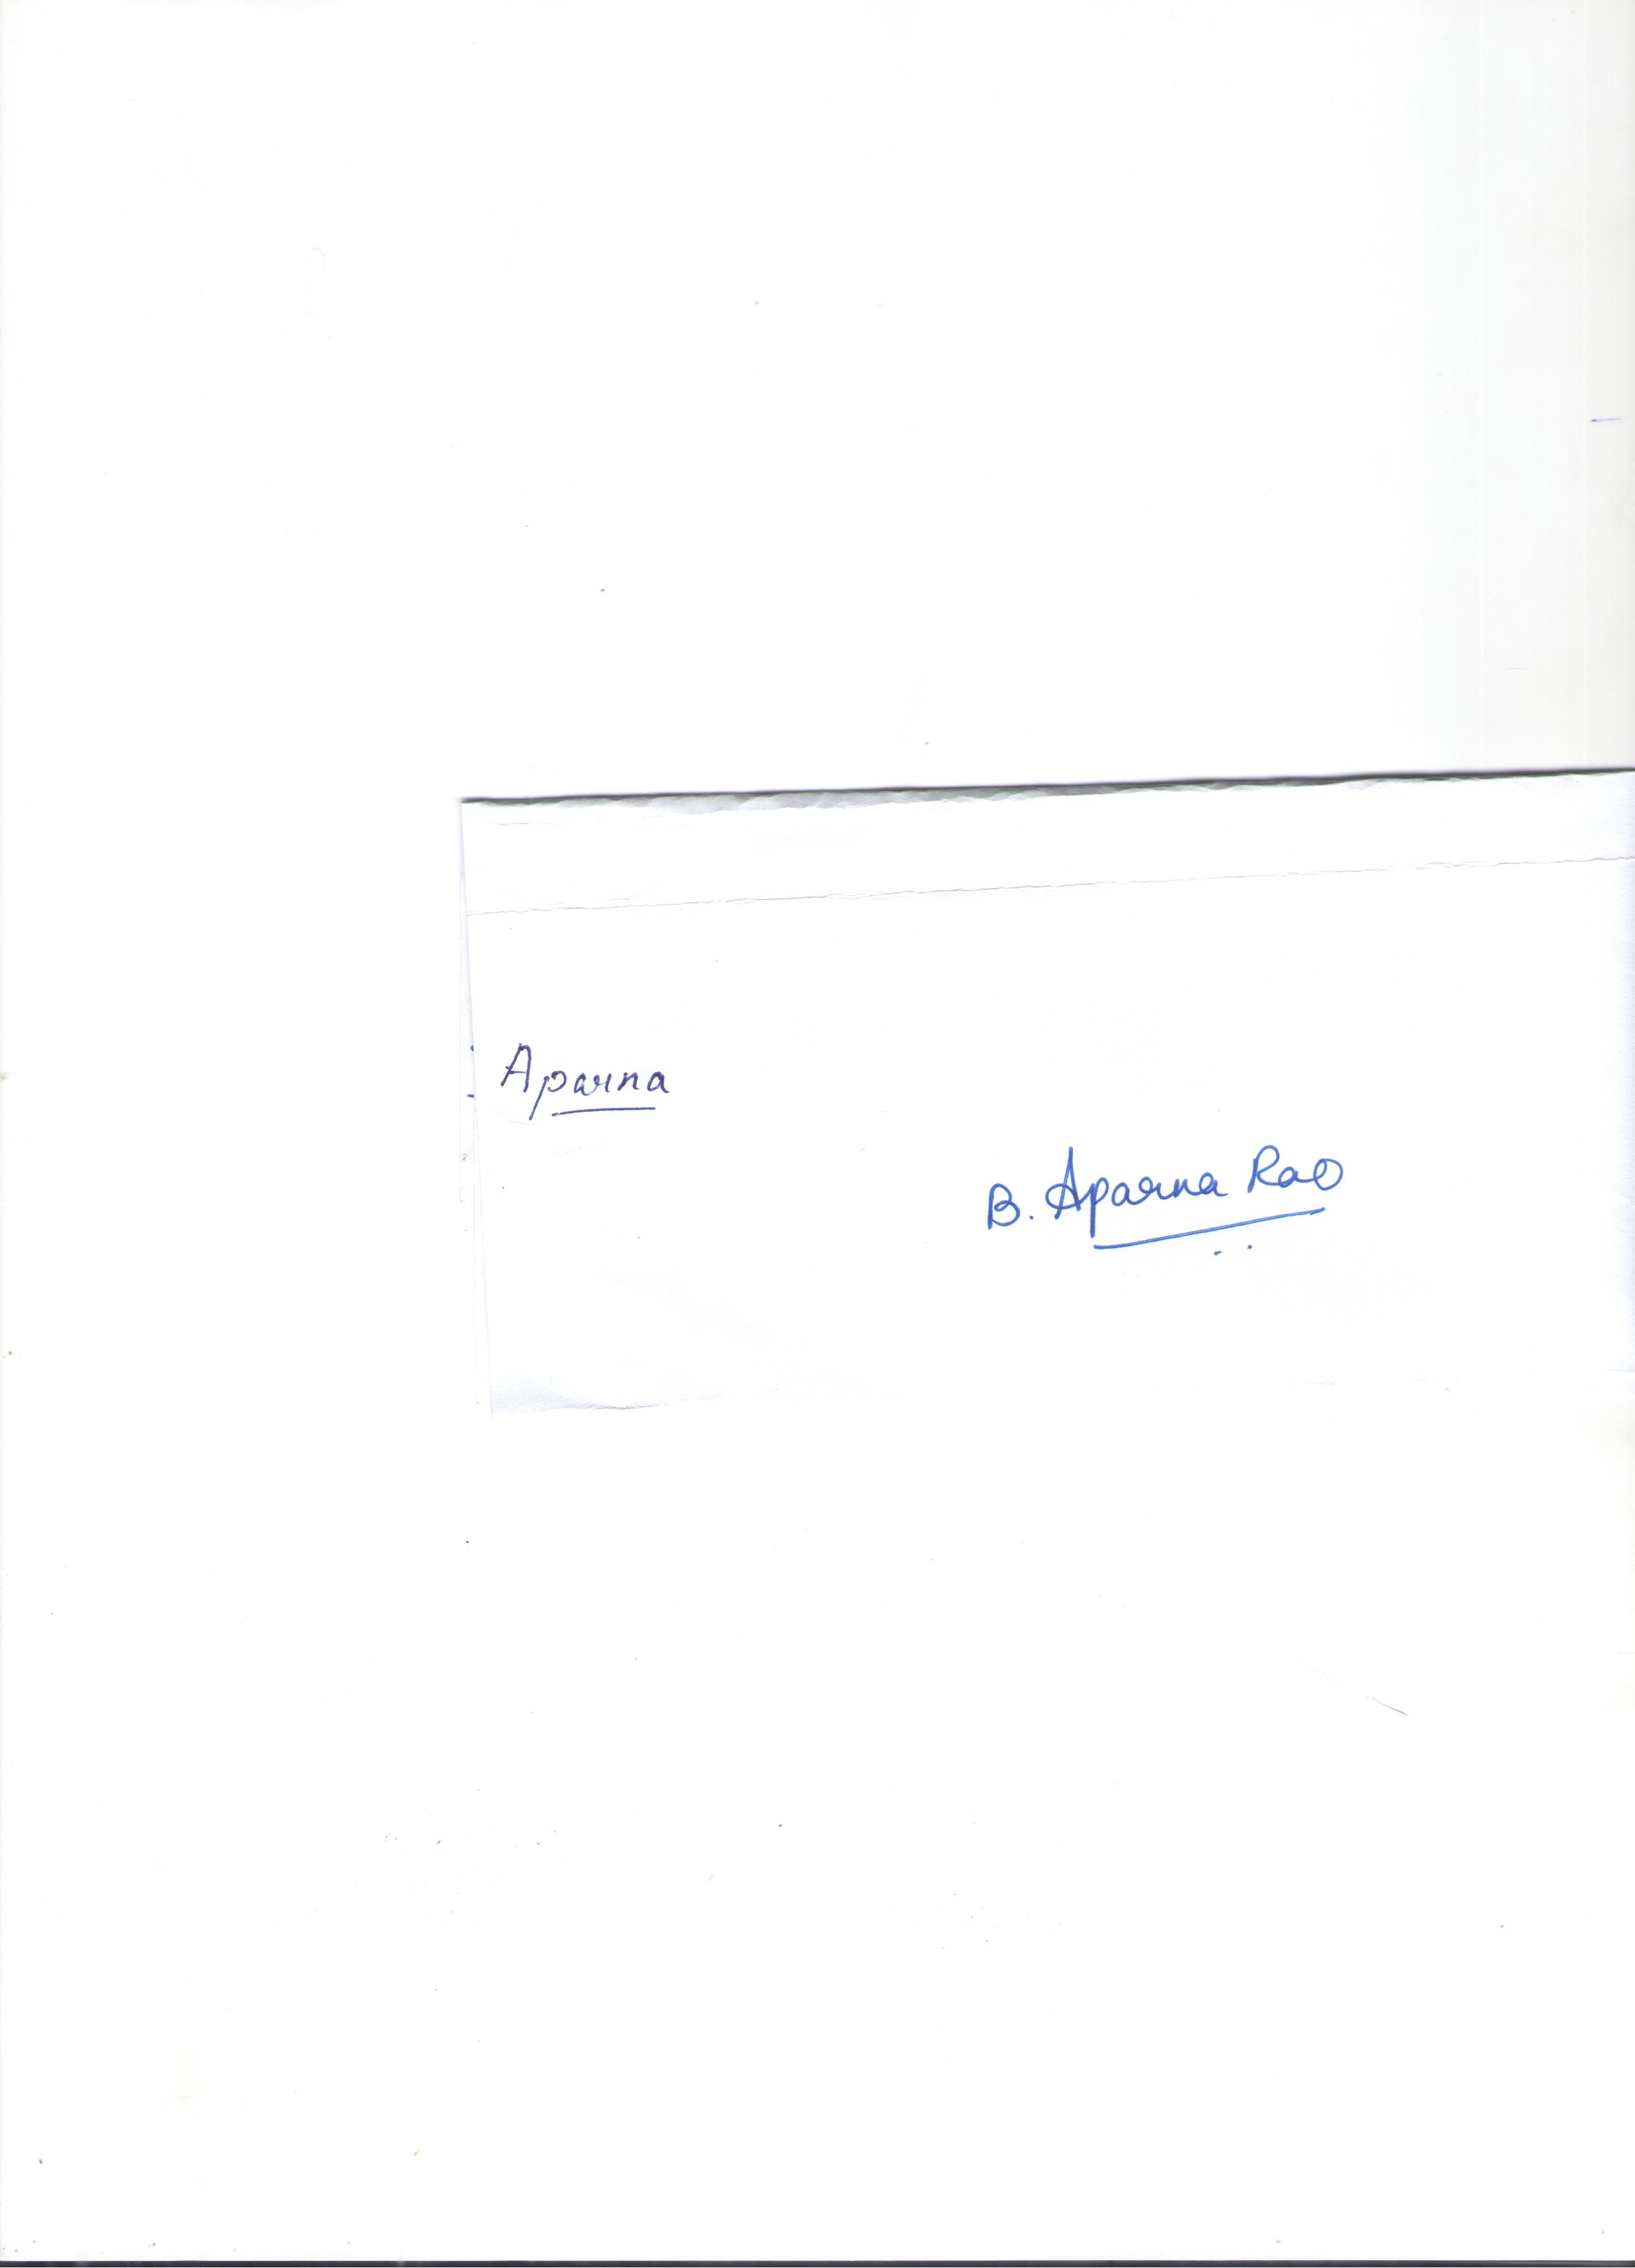 Aparna
B. Aparna Rao